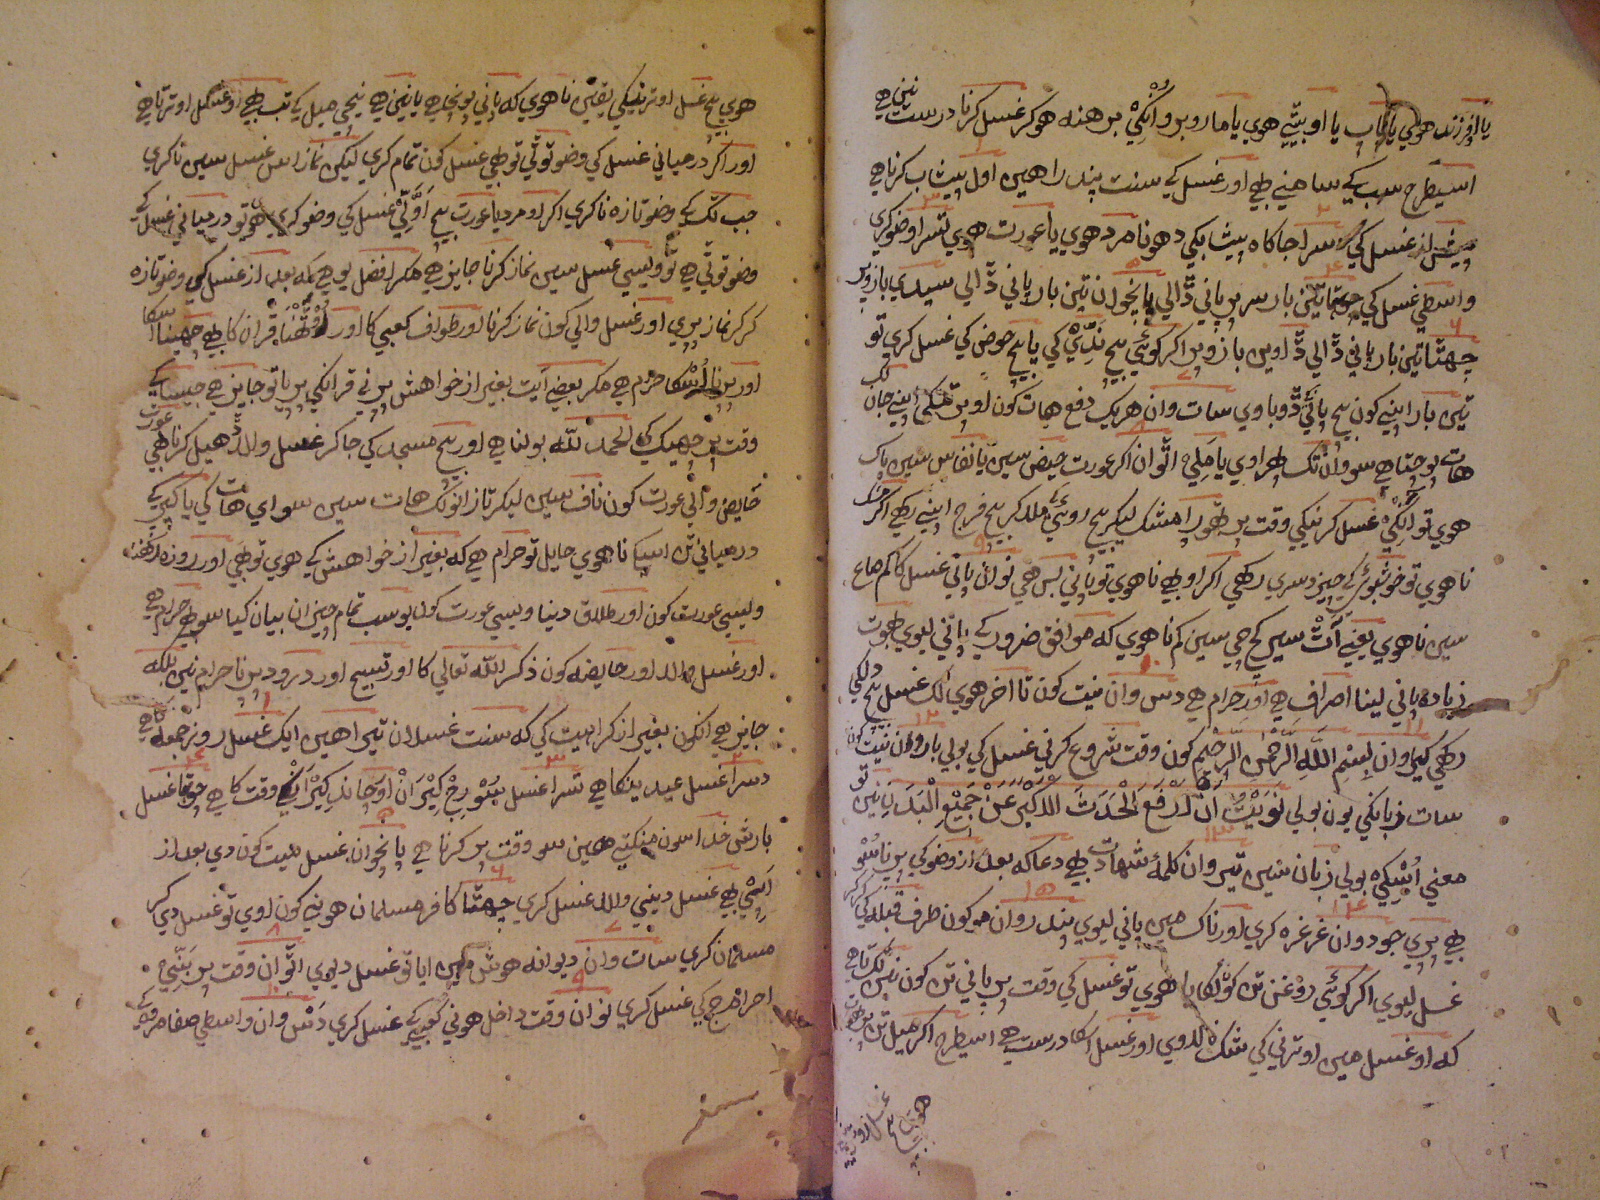 یا فرزند هوي یا باپ یا او بیٹي هوي یا مارو پر وانکي برهنه هوکر غسل کرنا درست نین هے
اسیطرح سب کے ساهنے بهے اور غسل کے سنت پندراهین اول پیشاب کرنا هے
پیش از غسل کي دسرا جاکاه پیشابکي دهونا مرد هوي یا عورت هوي تسرا وضو کري
واسطي غسل کي چوتها تین بار سر پر پاني ڈالي پانچوان تین بار پاني ڈالي سیدي بازو پر
چهٹا تین بار پاني ڈالي ڈاوین بازو پر اکر کوئي بیچ ندّي کي یا بیچ حوض کي غسل کري تو
تین بار اپنے کون بیچ پاني ڈوباوي سات وان هریک دفع هات کون اوپر تنکي اپنے جان لک
هات پوچتا هے سو وان تک پهراوي یا ملي اٹوان اکر عورت حیض سین یا نفاس سین پاک
هوي تو انکي غسل کرنیکي وقت پر تهورا مشک لیکر بیچ روئي کے ملا کر بیچ فرج اپنے رکهے اکر مشک
نا هوي تو خوشبوئي کے چیز دسري رکهي اکر او بهے نا هوي تو پاني بس هي نوان پاني غسل کا کم صاع
سین نا هوي یعنے آٹ سیر کچ چي سین کم نا هوي که موافق ضرور کے پاني لیوي بهوت
زیاده پاني لینا اصراف هے اور حرام هے دس وان نیت کون تا آخر هوي لک غسل بیچ دل کي
رکهي کیاروان بسم الله الرحمن الرحیم کون وقت شروع کرني غسل کي بولي باروان نیت کون
سات زبانکي یون بولي نویت ان ارفع الحدث الاکبر عن جمیع البدن یا نین تو
معني اسکي بولي زبان سین تیروان کلمهٔ شهادت بهے دعا که بعد از وضو کي پرنا سو
بهے پري چودوان غرغره کري اور ناک مین پاني لیوي پندروان موکون طرف قبله کي کر کر
غسل لیوي اکر کوئي روغن تن کو لکایا هوي تو غسل کي وقت پر پاني تن کون نین لکتا هے
که او غسل مین اوترني کي شک نا لاوي اور غسل اسکا درست هے اسیطرح اکر میل تن پر بهوت
هوي بیچ غسل اوترنیکي یقین نا هوي که پاني پونچا هے یا نین هے نیچي میل کے تب بهے او غسل اوترتا هے
اور اکر درمیاني غسل کي وضو توٹي تو بهي غسل کون تمام کري لیکن نماز اس غسل سین نا کري
جب تک کے وضو تازه نا کري اکر او مرد یا عورت بیچ اوّلي غسل کي وضو کري هے تو درمیاني غسل کے
وضو توٹي هے تو ویسي غسل سین نماز کرنا جایز هے مکر افضل یو هے که بعد از غسل کي وضو تازه
کر کر نماز پري اور غسل والي کون نماز کرنا اور طواف کعبي کا اور قرآن کا بهے چهینا اسکا
اور پرنا اسکا حرام هے مکر بعضے آیت بغیر از خواهش پرني قرآنکي پریا تو جایز هے جیساکے
وقت پر چهیک کي الحمد لله بولنا هے اور بیچ مسجد کي جا کر غسل والا ڈهیل کرنا بهي عورت
حایض والي عورت کون ناف سین لیکر تا زانو تک هات سین سواي هات کي یا کپري
درمیاني تن اسکا نا هوي حایل تو حرام هے که بغیر از خواهش کے هوي تو بهي اور روزه رکهنا
ویسي عورت کون اور طلاق دینا ویسي عورت کون یو سب تمام چیزان بیان کیا سو بهے حرام هے
اور غسل والا اور حایضه کون ذکر الله تعالي کا اور تسبیح اور درود پرنا حرام نین بلکه
جایز هے انکون بغیر از کراهیت کي که سنت غسلان تیراهین ایک غسل روز جمعه کا هے
دسرا غسل عیدینکا هے تسرا غسل سورج کیران اور چاند کیران کے وقت کا هے چوتها غسل
بارش خدا سون منکتے هین سو وقت پر کرنا هے پانچوان غسل میت کون دي بعد از
اسي بهے غسل دیني والا غسل کري چهٹا کافر مسلمان هونے کون اوي تو غسل دي کر
مسلمان کري سات وان دیوانه هوش مین ایا تو غسل دیوي اٹوان وقت پر بنیّ
احرام حج کي غسل کري نوان وقت داخل هوني کعبے کے غسل کري دس وان واسطي صفا مروه کے